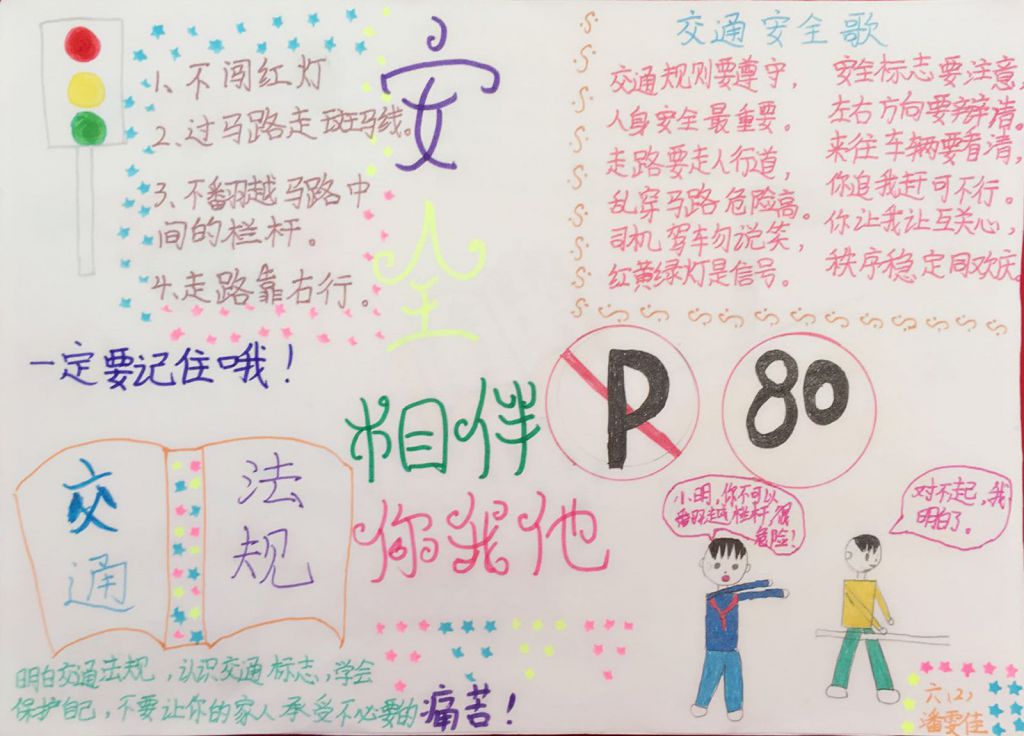 1、不闯红灯
2、过马路走斑马线。
3、不翻越马路中
间的栏杆。
4、走路靠右行。
一定要记住哦！
安
全
相伴
你我他
交通安全歌
交通规则要遵守，
人身安全最重要。
走路要走人行道，
乱穿马路危险高。
司机驾车勿说笑，
红黄绿灯是信号。
安全标志要注意，
左右方向要辩清。
来往车辆要看清，
你追我赶可不行。
你让我让互关心，
秩序稳定同欢庆。
P
80
交
通
法
规
小明，你不可以
翻越栏杆，很
危险！
对不起，我
明白了。
明白交通法规，认识交通标志，学会
保护自己，不要让你的家人承受不必要的痛苦！
六(2)
潘雯佳